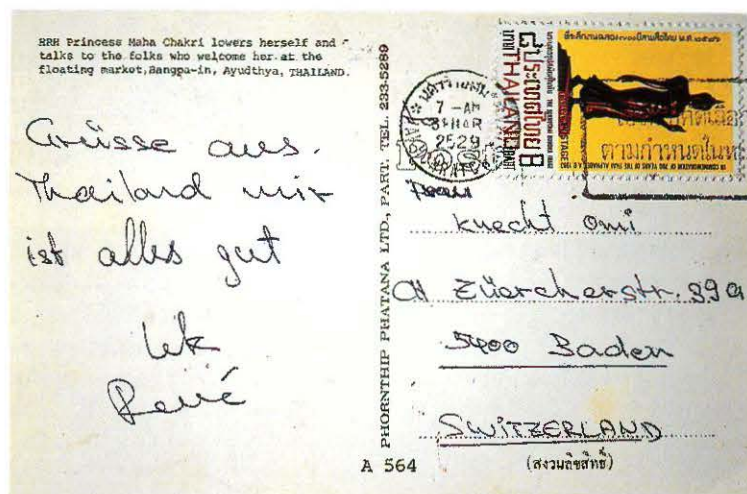 HRH Princess Maha Chakri lowers herself and
talks to the folks who welcome her at the
floating market, Bangpa-in, Ayudhya, THAILAND.
Grüsse aus.
Thailand mir
ist alles gut
René
PHORNTHIP PHATANA LTD., PART. TEL. 233-5289
A 564
7 - AM
MAR
2529
ประเทศไทย
THAILAND
POSTAGE
Frau
Knecht Omi
CH Zürcherstr. 39a
5400 Baden
SWITZERLAND
(สงวนลิขสิทธิ์)